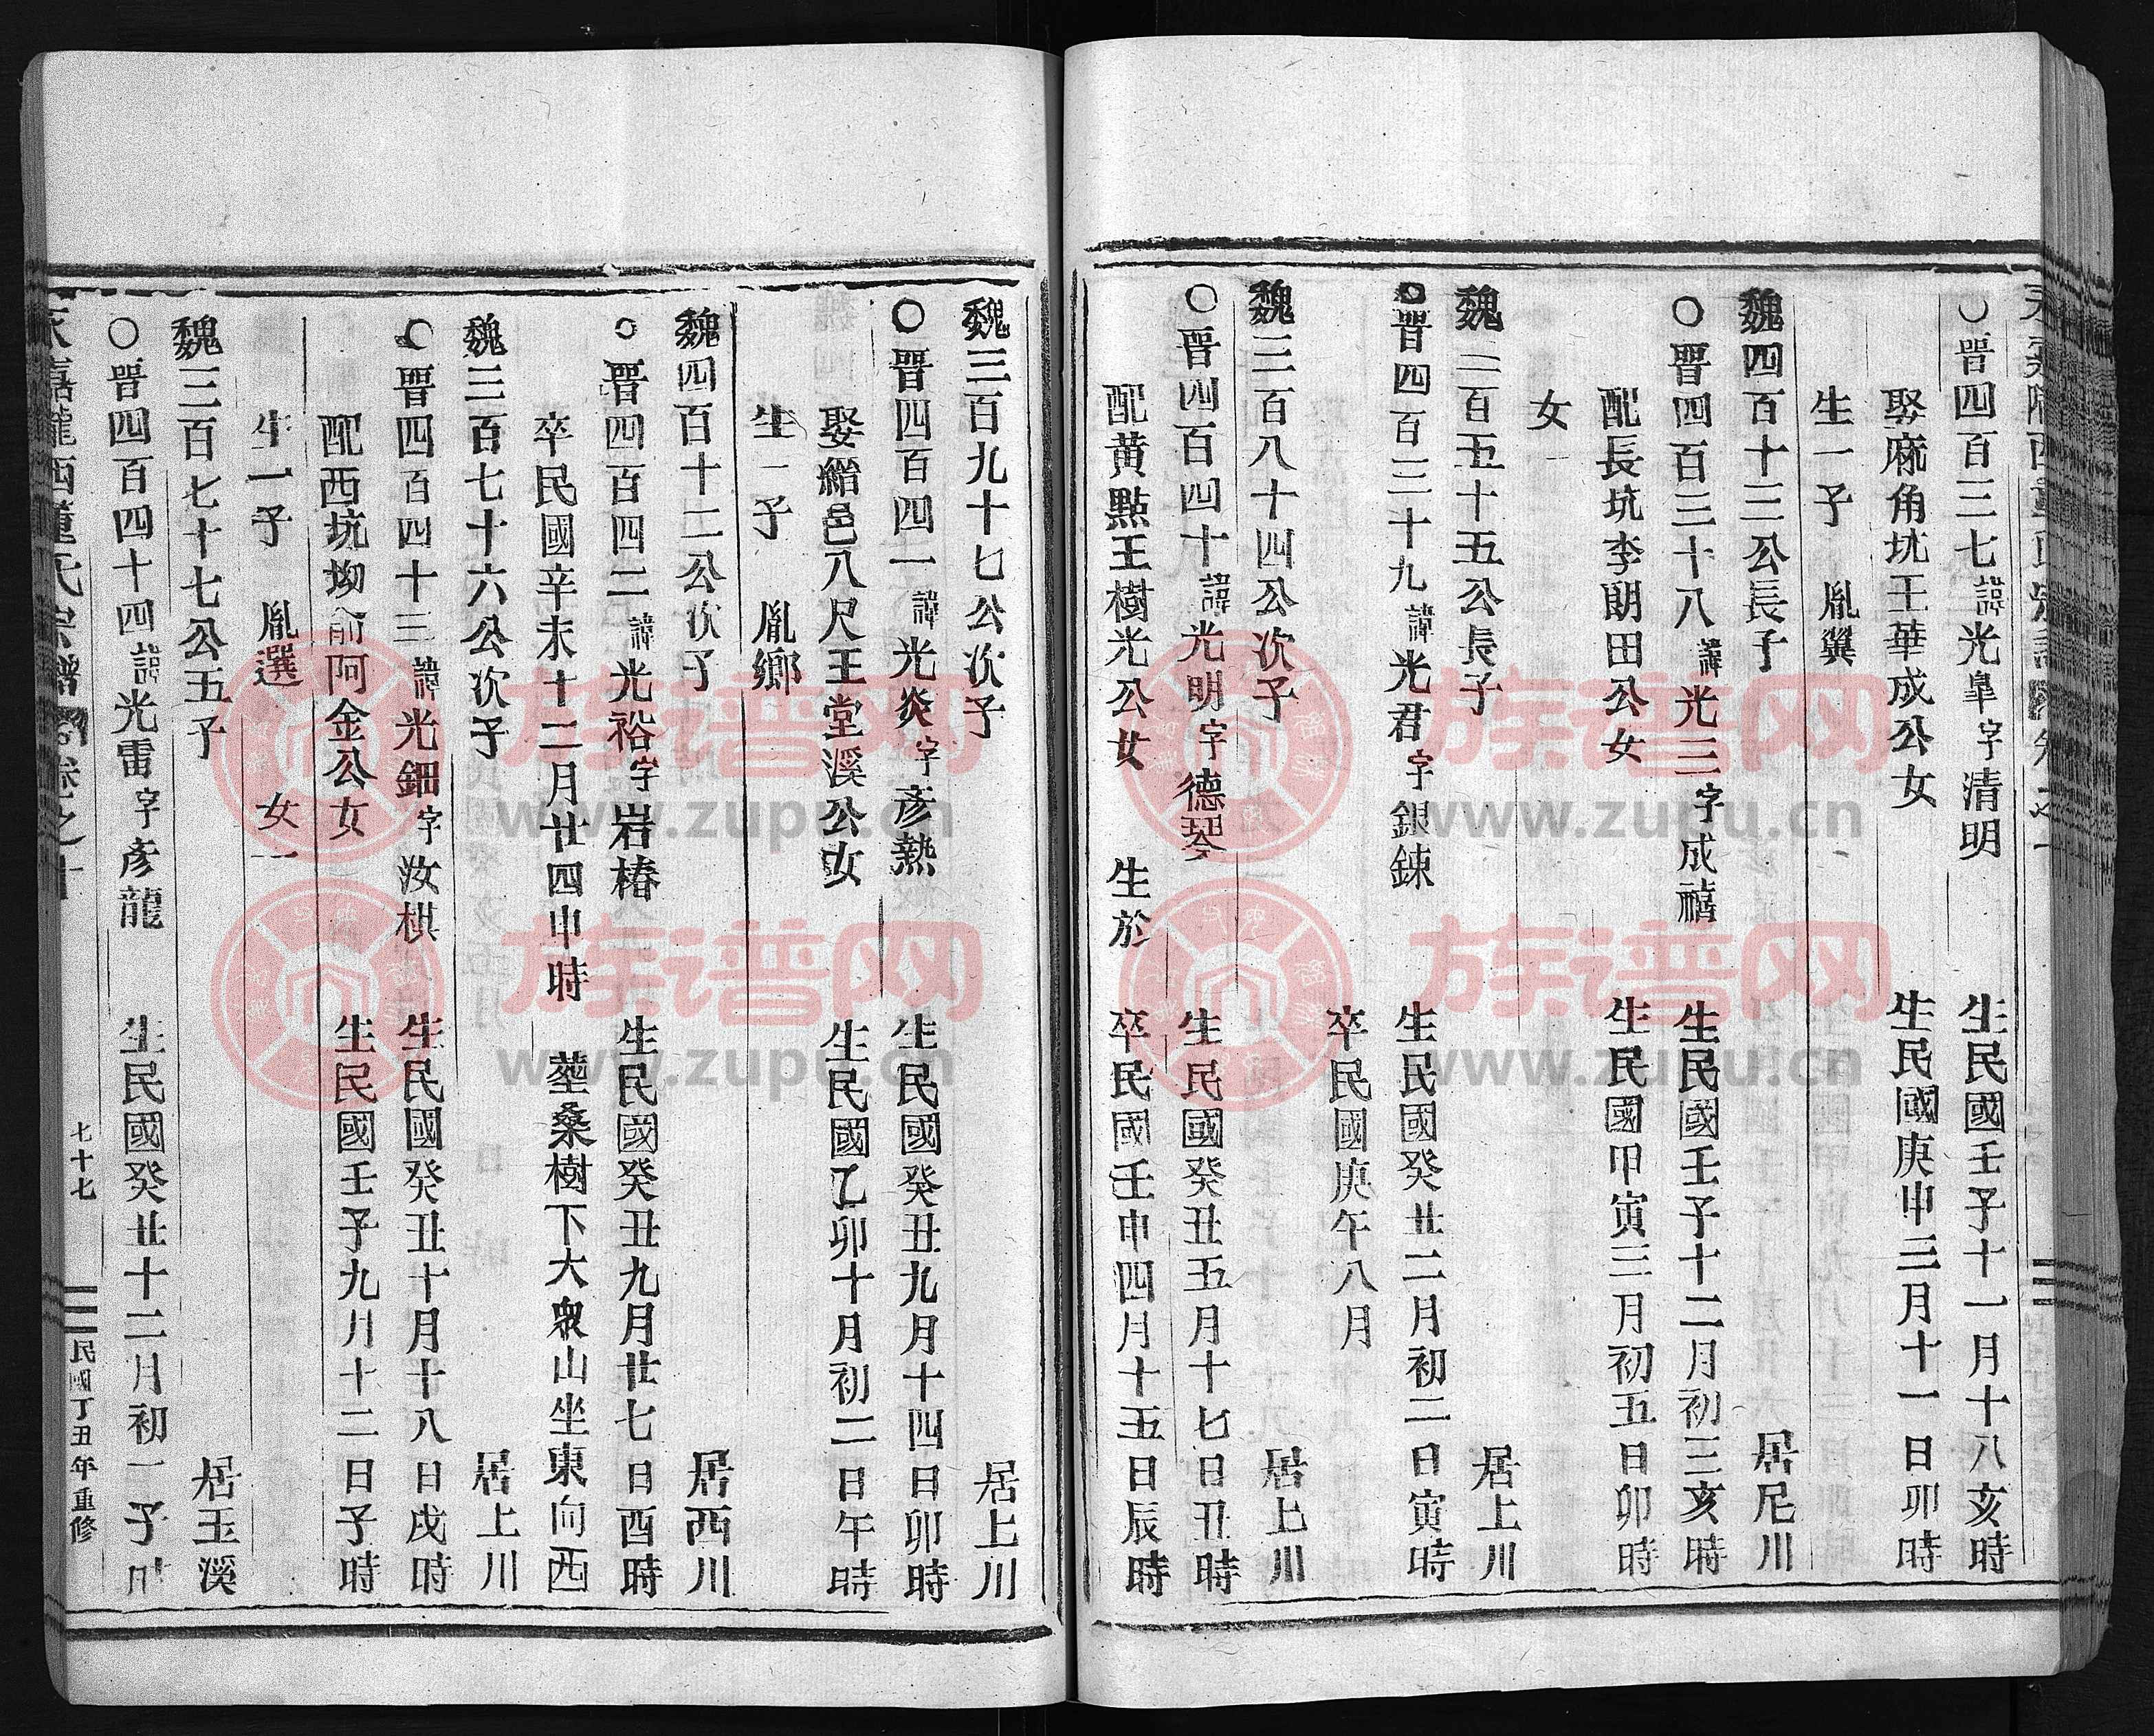 ○晋四百三七諱光皐字清明 生民國壬子十一月十八亥時
娶麻角坑王華成公女 生民國庚申三月十一日卯時
生一子 胤翼
魏四百十三公長子 居尼川
○晋四百三十八諱光三字成禧 生民國壬子十二月初三亥時
配長坑李朗田公女 生民國甲寅三月初五日卯時
女一
魏三百五十五公長子 居上川
○晋四百三十九諱光君字銀鍊 生民國癸丑二月初二日寅時
卒民國庚午八月
魏三百八十四公次子 居上川
○晋四百四十諱光明字德琴 生民國癸丑五月十七日丑時
配黄點王樹光公女 生於 卒民國壬申四月十五日辰時
魏三百九十七公次子 居上川
○晋四百四一諱光炎字彥熱 生民國癸丑九月十四日卯時
娶縉邑八尺王堂溪公女 生民國乙卯十月初二日午時
生一子 胤鄉
魏四百十二公次子 居西川
○晋四百四二諱光裕字岩椿 生民國癸丑九月廿七日酉時
卒民國辛未十二月廿四申時 塟桑樹下大衆山坐東向西
魏三百七十六公次子 居上川
○晋四百四十三諱光鈿字汝棋 生民國癸丑十月十八日戌時
配西坑坳俞阿金公女 生民國壬子九月十二日子時
生一子 胤選 女一
魏三百七十七公五子 居玉溪
○晋四百四十四諱光雷字彥龍 生民國癸丑十二月初一子時
永嘉隴西董氏宗譜 卷之 七十七 民國丁丑年重修
族谱网
www.zupu.cn
族谱网
www.zupu.cn
族谱网
www.zupu.cn
族谱网
www.zupu.cn